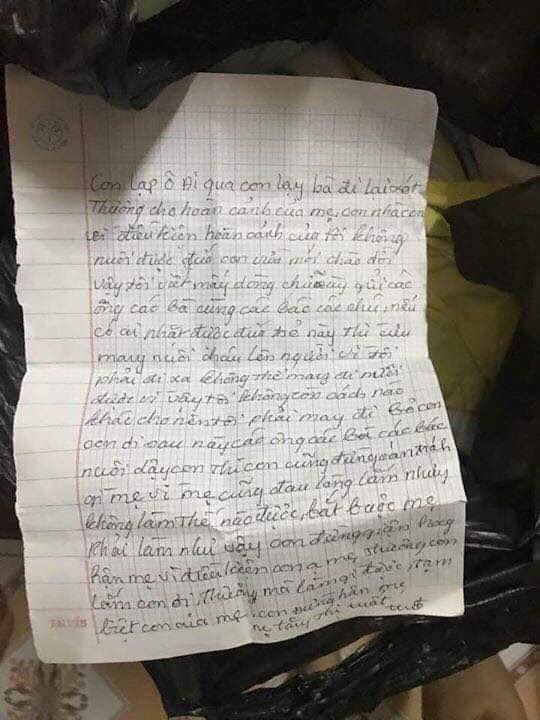 Con lạp ô đi qua con lạy bà đi lại xót
Thương cho hoàn cảnh của mẹ con nhà con
vì điều kiện hoàn cảnh của tôi không
nuôi được đứa con vừa mới chào đời
vậy tôi viết mấy dòng chữ này gửi các
ông các bà cùng các bác các chú, nếu
có ai nhặt được đứa trẻ này thì cưu
mang nuôi cháu lên người vì tôi
phải đi xa không thể mang đi nuôi
được vì vậy tôi không còn cách nào
khác cho nên tôi phải may đi bỏ con
con đi sau này các ông các bà các bác
nuôi dậy con thì con cũng đừng oán trách
gì mẹ vì mẹ cũng đau lòng lắm nhưng
không làm thế nào được, bắt buộc mẹ
phải làm như vậy con đừng giận hoạc
hận mẹ vì điều kiện con ạ mẹ thương con
lắm con ơi, Thương mà làm gì được, tạm
biệt con của mẹ, con đừng hận mẹ
mẹ
HẢI TIẾN